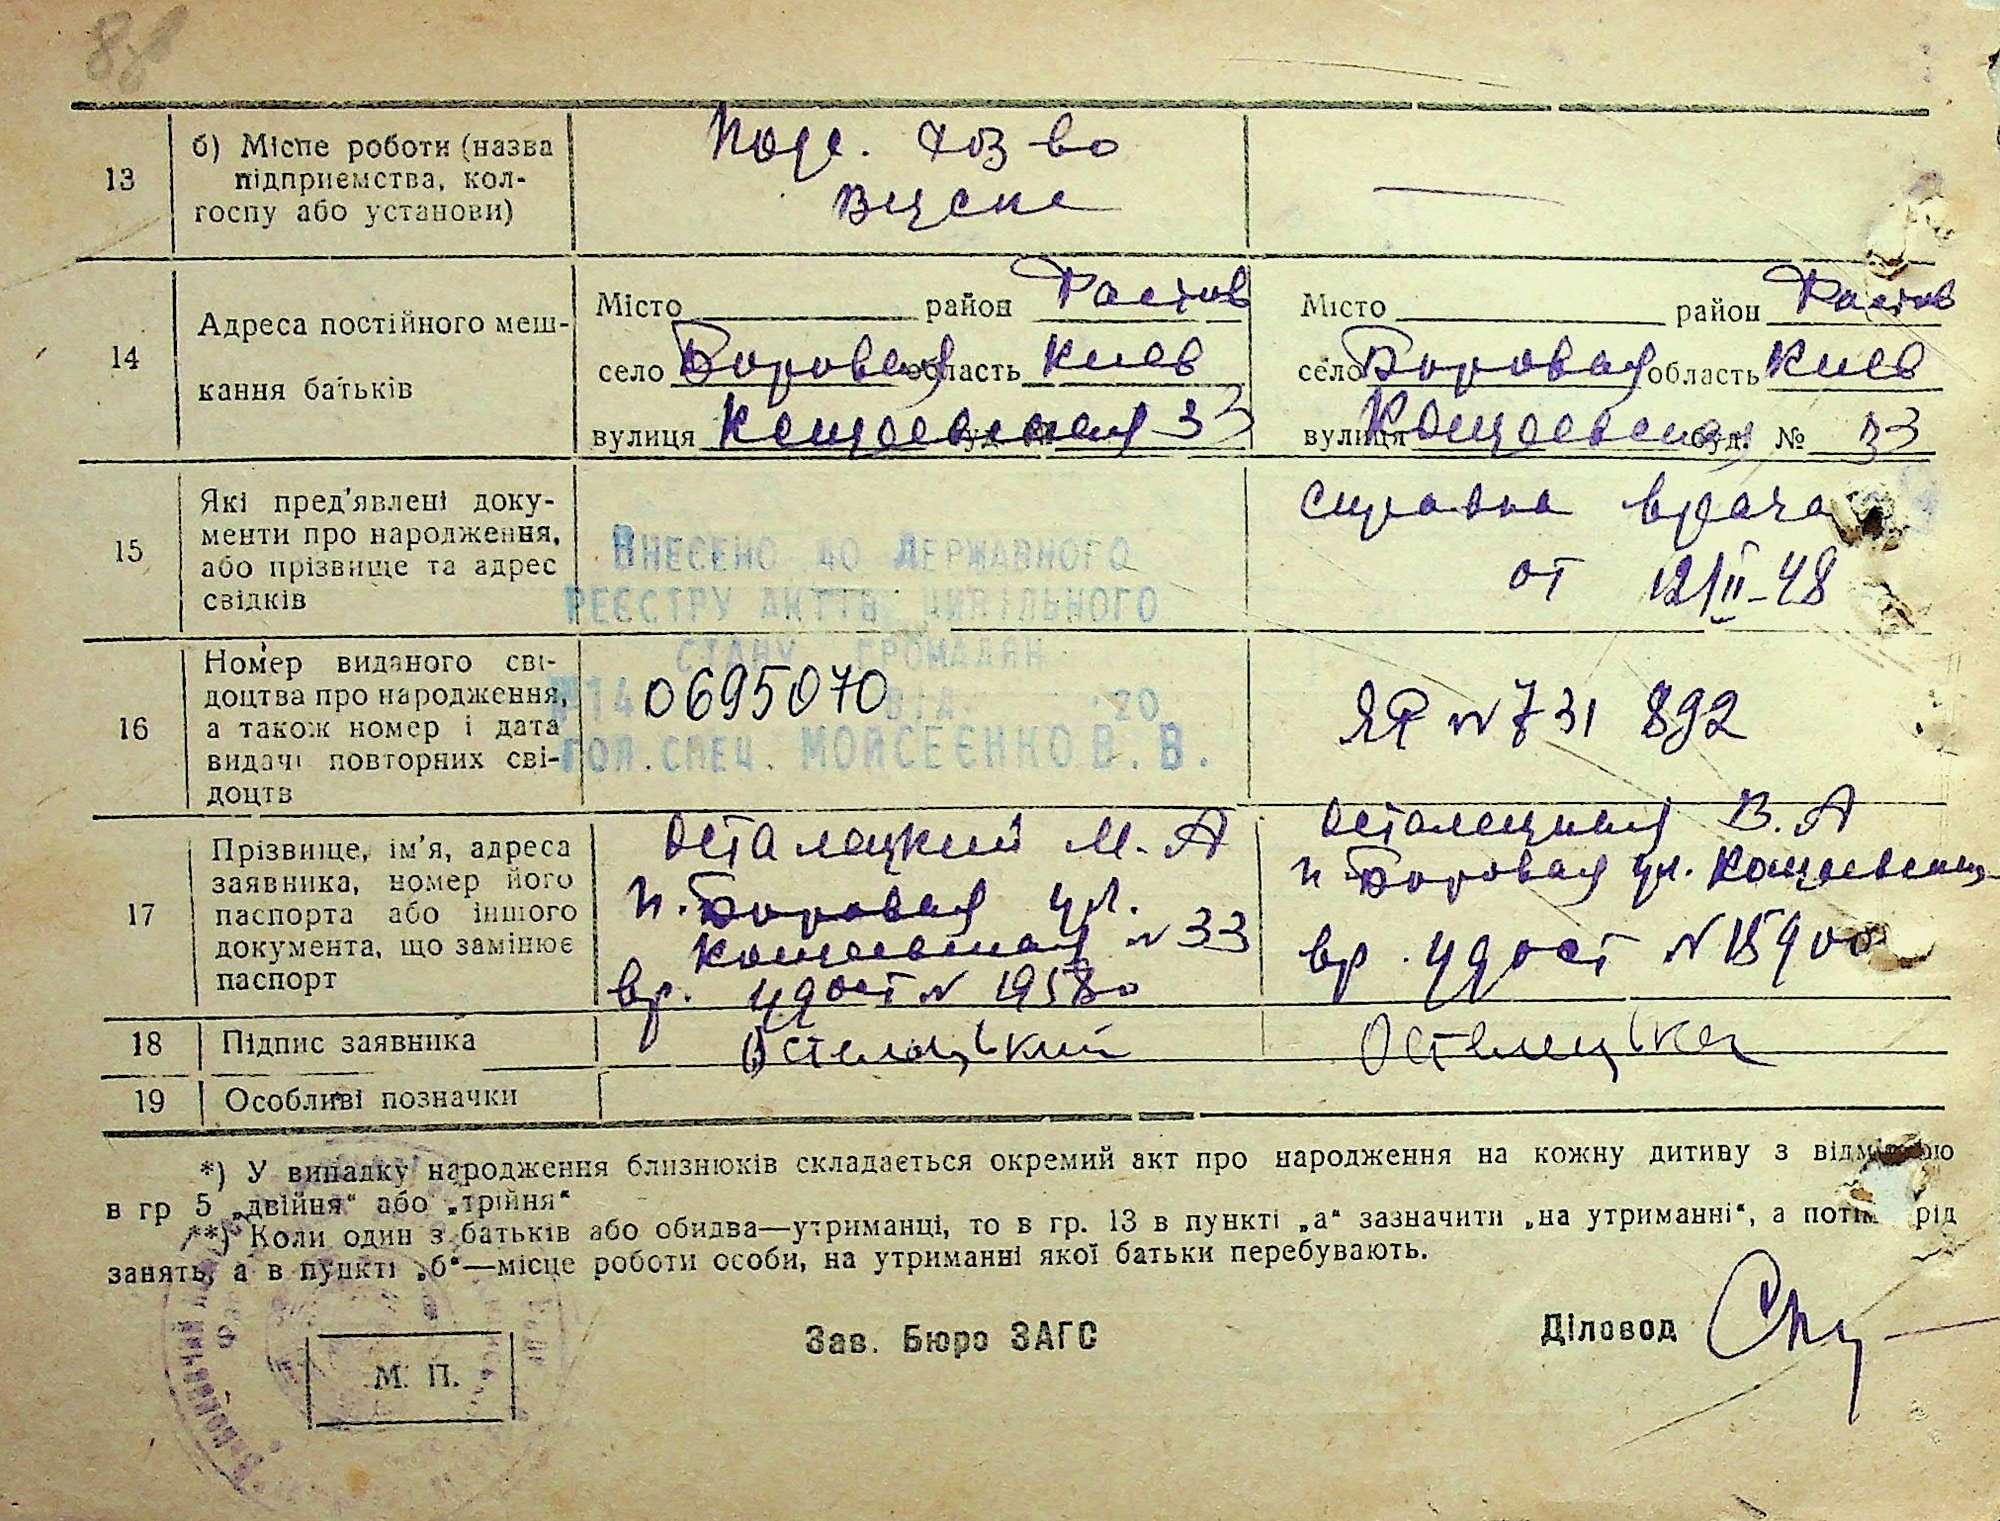 13
б) Місце роботи (назва
підприємства, кол-
госпу або установи)
Подс. хоз-во
14
Адреса постійного меш-
кання батьків
Місто район Фастов
село Боровая область Киев
вулиця Кощеевская 33
Місто район Фастов
село Боровая область Киев
вулиця Кощеевская буд. № 33
15
Які пред'явлені доку-
менти про народження,
або прізвище та адрес
свідків
справка врача
от 12/II-48
ВНЕСЕНО ДО ДЕРЖАВНОГО
РЕЄСТРУ АКТІВ ЦИВІЛЬНОГО
СТАНУ ГРОМАДЯН
№14 0695070 ВІД 20
ГОЛ.СПЕЦ. МОЙСЕЄНКО В.В.
16
Номер виданого сві-
доцтва про народження,
а також номер і дата
видачі повторних сві-
доцтв
ЯР № 731 892
17
Прізвище, ім'я, адреса
заявника, номер його
паспорта або іншого
документа, що замінює
паспорт
Осталецкий М. А
п. Боровая ул.
Кощеевская № 33
вр. удост № 19580
Осталецкая В. А
п. Боровая ул. Кощеевская
вр. удост № 15900
18
Підпис заявника
Осталецький
Осталецька
19
Особливі позначки
*) У випадку народження близнюків складається окремий акт про народження на кожну дитину з відміткою
в гр 5 „двійня“ або „трійня“
**) Коли один з батьків або обидва—утриманці, то в гр. 13 в пункті „а“ зазначити „на утриманні“, а потім рід
занять, а в пункті „б“—місце роботи особи, на утриманні якої батьки перебувають.
М. П.
Зав. Бюро ЗАГС
Діловод